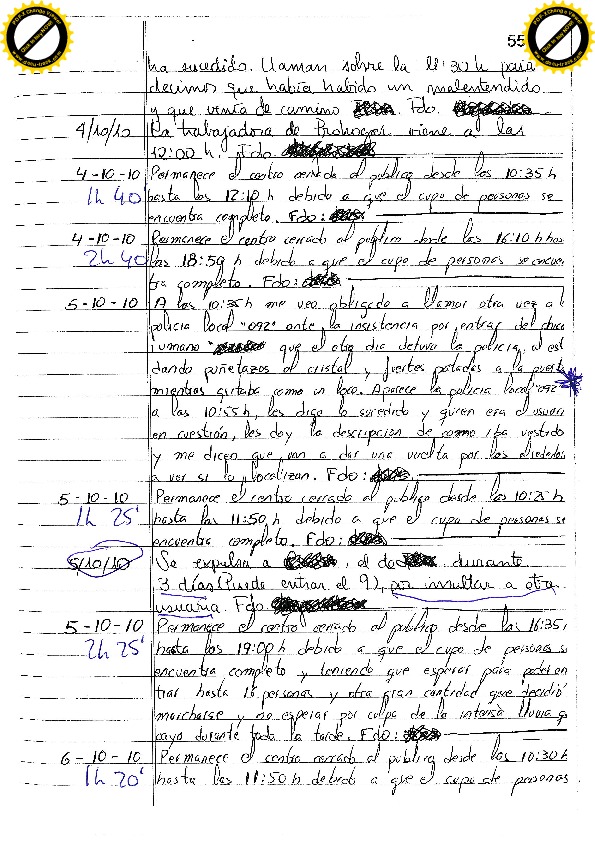 55
ha sucedido. Llaman sobre la 11:30 h para
decirnos que había habido un malentendido
y que venía de camino Fdo.
4/10/10 La trabajadora de Prohogar viene a las
12:00 h. Fdo.
4-10-10 Permanece el centro cerrado al público desde las 10:35 h
1h 40' hasta las 12:10 h debido a que el cupo de personas se
encuentra completo. Fdo:
4-10-10 Permanece el centro cerrado al público desde las 16:10 h has
2h 40' las 18:50 h debido a que el cupo de personas se encuen
tra completo. Fdo:
5-10-10 A las 10:35 h me veo obligado a llamar otra vez a l
policía local "092" ante la insistencia por entrar del chico
rumano que el otro día detuvo la policía, al est
dando puñetazos al cristal y fuertes patadas a la puerta
mientras gritaba como un loco. Aparece la policía local "092"
a las 10:55 h, les digo lo sucedido y quien era el usuari
en cuestión, les doy la descripción de como iba vestido
y me dicen que van a dar una vuelta por los alrededo
a ver si lo localizan. Fdo:
5-10-10 Permanece el centro cerrado al público desde las h
1h 25' hasta las 11:50 h debido a que el cupo de personas se
encuentra completo. Fdo:
5/10/10 Se expulsa a el de durante
3 días (Puede entrar el 9), por insultar a otra
usuaria Fdo
5-10-10 Permanece el centro cerrado al público desde las 16:35
2h 25' hasta las 19:00 h debido a que el cupo de personas s
encuentra completo y teniendo que esperar para poder en
trar hasta personas y otra gran cantidad que decidió
marcharse y no esperar por culpa de la intensa lluvia q
cayo durante toda la tarde. Fdo:
6-10-10 Permanece el centro cerrado al público desde las 10:30 h
1h 20' hasta las 11:50 h debido a que el cupo de personas